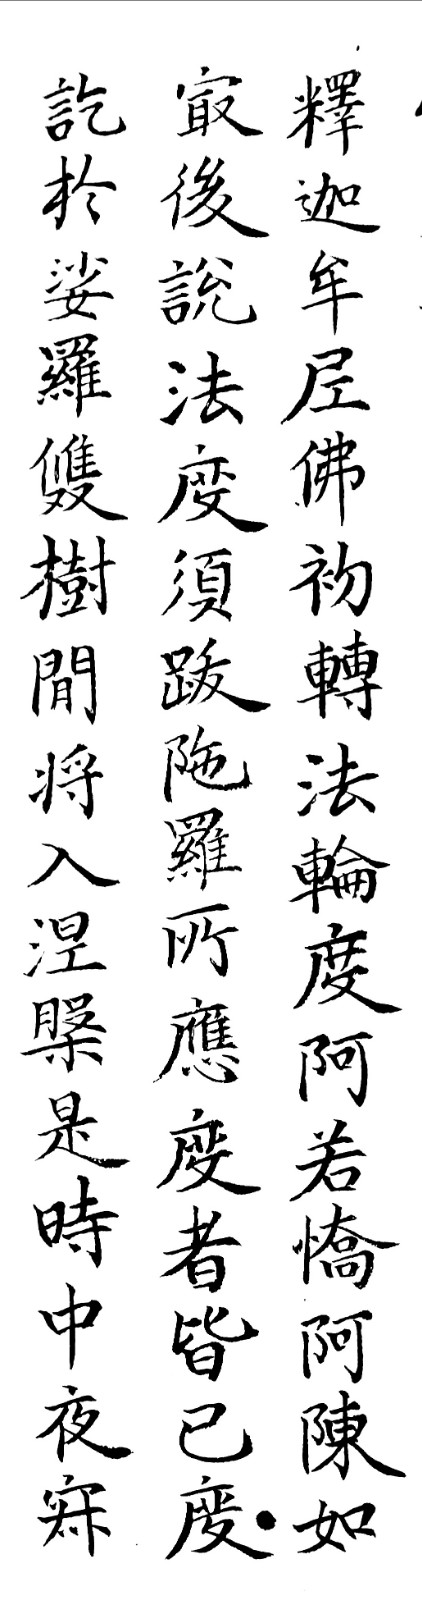 釋迦牟尼佛初轉法輪度阿若憍阿陳如
㝡後說法度須跋陁羅所應度者皆已度
訖於娑羅雙樹閒将入涅槃是時中夜寂